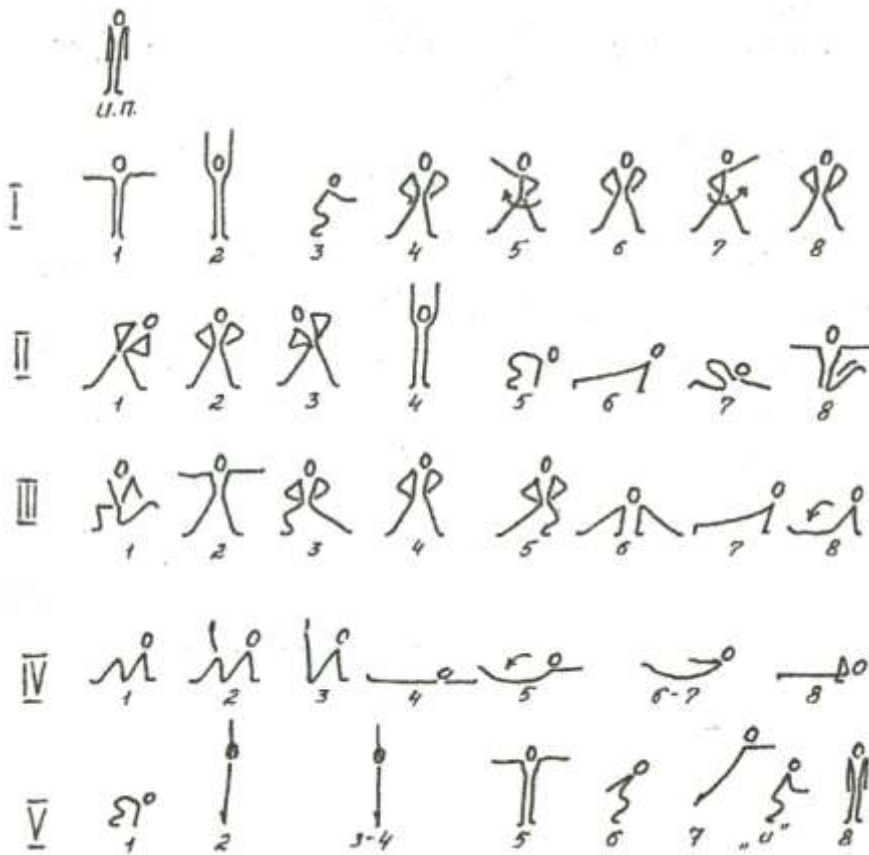 и.п.
I
1 2 3 4 5 6 7 8
II
1 2 3 4 5 6 7 8
III
1 2 3 4 5 6 7 8
IV
1 2 3 4 5 6-7 8
V
1 2 3-4 5 6 7 „и" 8